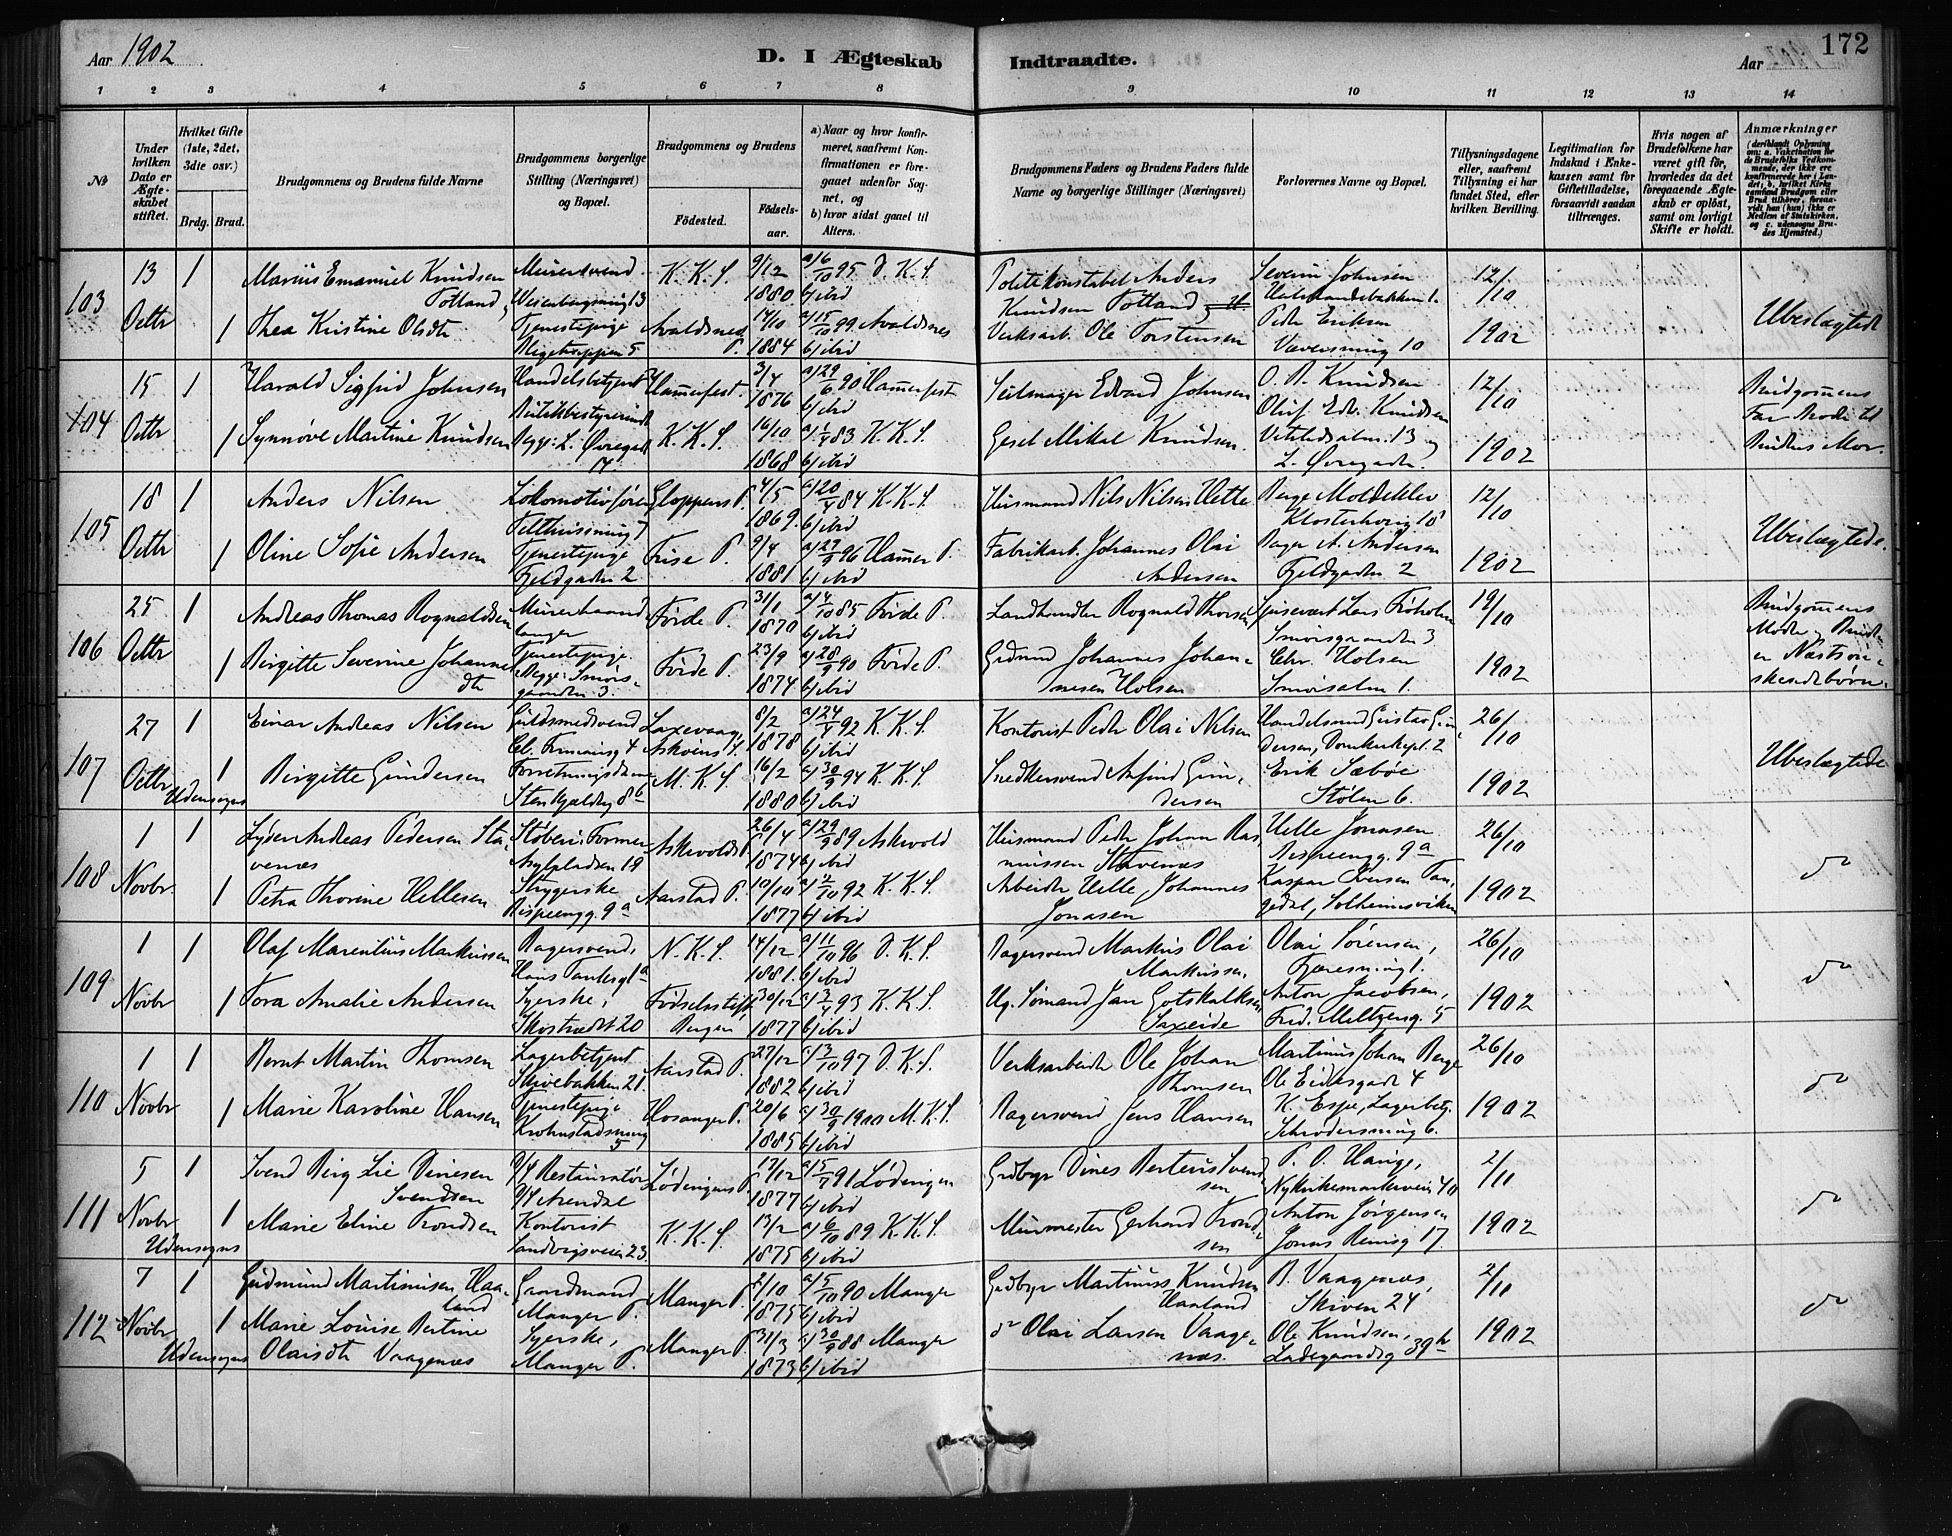 Aar 1902
D. I Ægteskab Indtraadte.
Aar
172
1 2 3 4 5 6 7 8 9 10 11 12 13 14
No
Under hvilken Dato er Ægteskabet stiftet.
Hvilket Gifte (1ste, 2det, 3die osv.)
Brdg. Brud.
Brudgommens og Brudens fulde Navne
Brudgommens borgerlige Stilling (Næringsvei) og Bopæl.
Brudgommens og Brudens
Fødested.
Fødselsaar.
a) Naar og hvor konfirmeret, saafremt Konfirmationen er foregaaet udenfor Sognet, og
b) hvor sidst gaaet til Alters.
Brudgommens Faders og Brudens Faders fulde Navne og borgerlige Stillinger (Næringsvei)
Forlovernes Navne og Bopæl.
Tillysningsdagene eller, saafremt Tillysning ei har fundet Sted, efter hvilken Bevilling.
Legitimation for Indskud i Enkekassen samt for Giftetilladelse, forsaavidt saadan tiltrænges.
Hvis nogen af Brudefolkene har været gift før, hvorledes da det foregaaende Ægteskab er opløst, samt om lovligt Skifte er holdt.
Anmærkninger (deriblandt Oplysning om: a. Vakcination for de Brudefolks Vedkommende, der ikke ere konfirmerede her i Landet; b. hvilket Kirkesamfund Brudgom eller Brud tilhører, forsaavidt han (hun) ikke er Medlem af Statskirken, og c. udensogns Brudes Hjemsted.)
103 13 Octbr 1 Marius Emanuel Knudsen Totland, Murersvend K. K. S. 9/12 1880 a/ 6/10 95 D. K. S. b/ ibid
Politikonstabel Anders Knudsen Totland Severin Johnsen 12/10 1902 Ubeslægtede
1 Thea Kristine Olsdtr Tjenestepige Avaldsnes P. 14/10 1884 a/ 15/10 99 Avaldsnes b/ ibid
Verksarb. Ole Torstensen Peder Eriksen Væversmug 10
104 15 Octbr 1 Harald Sigfrid Johnsen Handelsbetjent Hamerfest. 3/4 1876 a/ 29/6 90 Hamerfest b/ ibid
Seilmager Edvard Johnsen O. B. Knudsen 12/10 1902 Brudgommens Far Broder til Brudens Mor.
1 Synnøve Martine Knudsen Butikbestyrerinde K. K. S. 16/10 1868 a/ 1/4 83 K. K. S. b/ ibid
Gesel Mikal Knudsen. Oluf Edv. Knudsen L. Øvregaden
105 18 Octbr 1 Anders Nilsen Lokomotivfører Gloppens P. 4/5 1869. a/ 20/4 84 K. K. S. b/ ibid
Husmand Nils Nilsen Hette Berge Moldeklev 12/10 1902 Ubeslægtede.
1 Oline Sofie Andersen Tjenestepige Fjeldgaden 2 9/4 1881 a/ 27/9 96 Hamer P. b/ ibid
Fabrikarb. Johannes Olai Andersen Bager A. Andersen Fjeldgaden 2
106 25 Octbr 1 Andreas Thomas Rognaldsen Murerhaandlanger Førde P. 3/1 1870 a/ 4/10 85 Førde P. b/ ibid
Landhandler Rognald Thorsen Spisevært Lars Frøholm Smørsgrænden 3 19/10 1902 Brudgommens Moder og Bruden er Næstsøskendebørn.
1 Birgitte Severine Johannesdtr Tjenestepige. Begge: Smørsgrænden 3. Førde P. 23/9 1874 a/ 28/9 90 Førde P. b/ ibid
Grdmd Johannes Johannesen Holsen Chr. Holsen Smørsalm. 1.
107 27 Octbr Udensogns 1 Einar Andreas Nilsen Guldsmedsvend Laxevaag, Askøens P. 8/2 1878 a/ 24/4 92 K. K. S. b/ ibid
Kontorist Peder Olai Nilsen Handelsmd Gustav Gundersen, Domkirkepl. 2 26/10 1902 Ubeslægtede
1 Birgitte Gundersen Forretningsdame M. K. S. 16/2 1880 a/ 30/9 94 K. K. S. b/ ibid
Snedkersvend Arfind Gundersen Erik Sæbøe Stølen 6.
108 1 Novbr. 1 Lyder Andreas Pedersen Stavenæs Støberi-Former Asylpladsen 19 Askevolds P. 26/4 1874 a/ 29/9 89 Askevold b/ ibid
Husmand Peder Johan Rasmussen Stavenæs Helle Jonasen Rispeengg. 9a 26/10 1902 do
1 Petra Thorine Hellesen Strygerske Rispeengg. 9a Aarstad P. 10/10 1877 a/ 2/10 92 K. K. S. b/ ibid
Arbeider Helle Johannes Jonasen Kaspar Iversen Tangedal, Solheimsviken
109 1 Novbr 1 Olaf Marentius Markussen Bagersvend, Hans Tanksg. 1a N. K. S. 14/12 1881. a/ 11/10 96 D. K. S. b/ ibid
Bagersvend Markus Olai Markussen, Olai Sørensen, 26/10 1902 do
1 Tora Amalie Andersen Syerske, Skostrædet 20 Fødselsstift. Bergen 30/12 1877 a/ 3/4 93 K. K. S. b/ ibid
Ug. Sømand Jan Gotskalksen Saxeide Anton Jacobsen, Fred. Meltzersg. 5
110 1 Novbr 1 Bernt Martin Thomsen Lagerbetjent Skivebakken 21. Aarstad P. 27/12 1882 a/ 3/10 97 D. K. S. b/ ibid
Verksarbeider Ole Johan Thomsen Martinus Johan Berge Ole Eidesgade 4 26/10 1902 do
1 Marie Karoline Hansen Tjenestepige Krohnstadsmug 5 Hosanger P. 20/6 1885 a/ 30/9 1900 M. K. S. b/ ibid
Bagersvend Jens Hansen K. Espe, Lagerbetj. Schrødersmug 6.
111 5 Novbr Udensogns 1 Svend Berg Lie Dinesen Svendsen Restauratør Arendal Lødingens P. 17/12 1877 a/ 5/7 91 Lødingen b/ ibid
Grdbgr Dines Berteus Svendsen P. O. Hauge, Nykirkemarkeveien 40 2/11 1902 do
1 Marie Eline Trondsen Kontorist Sandvigsveien 23. K. K. S. 13/2 1875 a/ 6/10 89 K. K. S. b/ ibid
Murmester Gerhard Trondsen Anton Jørgensen Jonas Reinsg 17.
112 7 Novbr Udensogns 1 Gudmund Martinusen Haaland Gaardmand Manger P. Manger P. 2/10 1875 a/ 5/10 90 Manger b/ ibid
Grdbgr Martinus Knudsen Haaland B. Vaagenæs, Skiven 24 2/11 1902 do
1 Marie Louise Bertine Olaisdtr Vaagenæs Syerske, Manger P. Manger P. 31/3 1873 a/ 30/9 88 Manger b/ ibid
do Olai Larsen Vaagenæs. Ole Knudsen, Ladegaardsg 39b